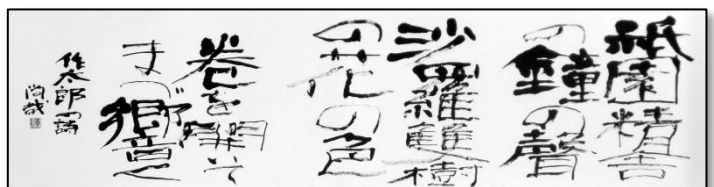 祇園精舎
の鐘の聲
沙羅雙樹
の花の色
巻を開いて
まづ郷愁
作太郎 詩
尚哉